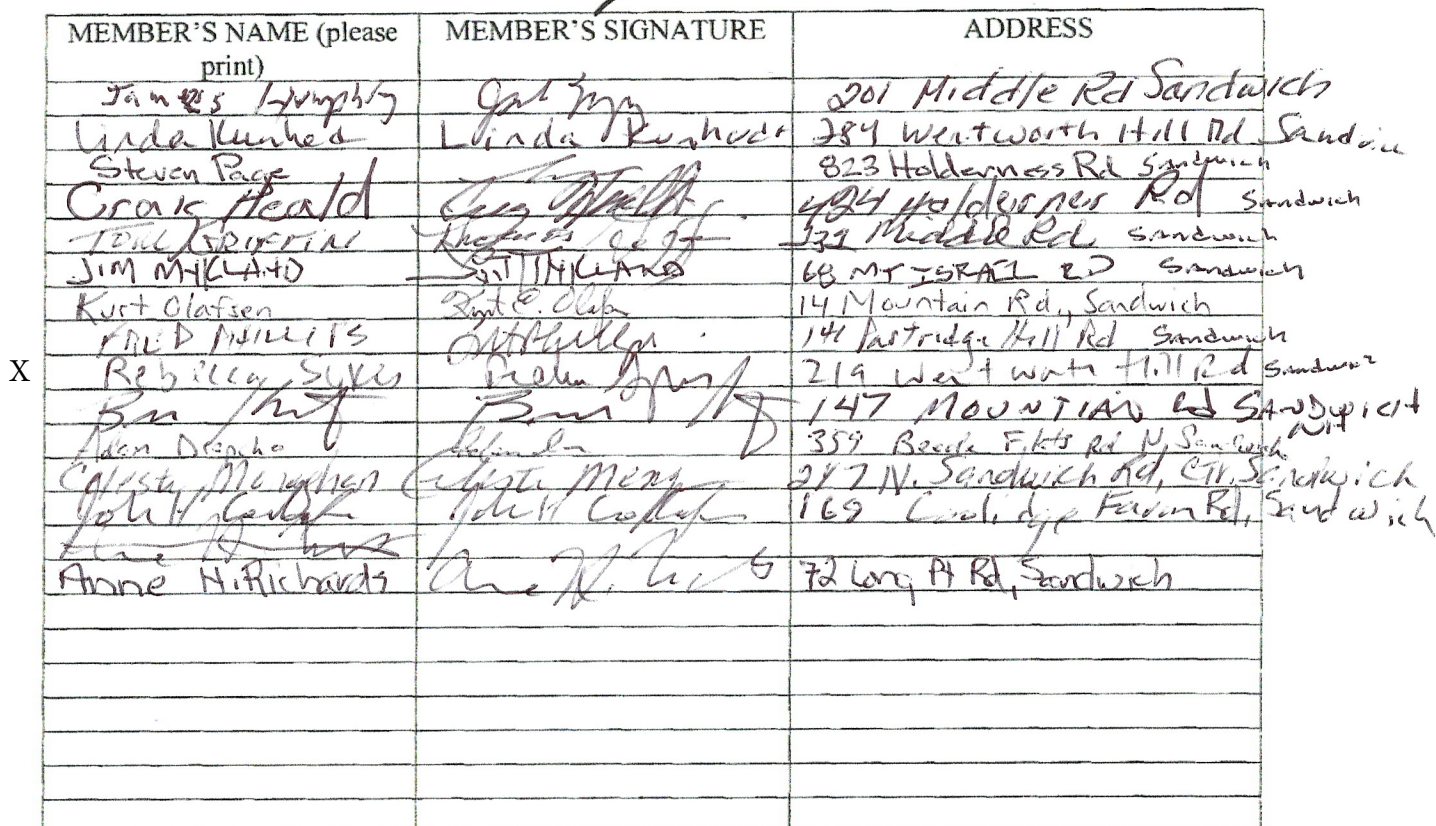 MEMBER'S NAME (please print) MEMBER'S SIGNATURE ADDRESS
James Humphrey 201 Middle Rd Sandwich
Linda Kunhardt Linda Kunhardt 284 Wentworth Hill Rd Sandwich
Steven Page 823 Holderness Rd Sandwich
Craig Heald 424 Holderness Rd Sandwich
Tom Griffin Middle Rd Sandwich
JIM MYKLAND JIM MYKLAND 68 MT ISRAEL RD Sandwich
Kurt Olafsen Kurt E. Olafsen 14 Mountain Rd., Sandwich
FRED PHILLIPS 141 Partridge Hill Rd Sandwich
X Rebecca Sykes 219 Wentworth Hill Rd Sandwich
147 MOUNTIAN Rd SANDWICH NH
Adam 359 Rd N. Sandwich
Celeste Monaghan Celeste 247 N. Sandwich Rd, Ctr. Sandwich
John H John H 169 Coolidge Farm Rd, Sandwich
Anne H. Richards Anne H. 72 Long Pt Rd, Sandwich